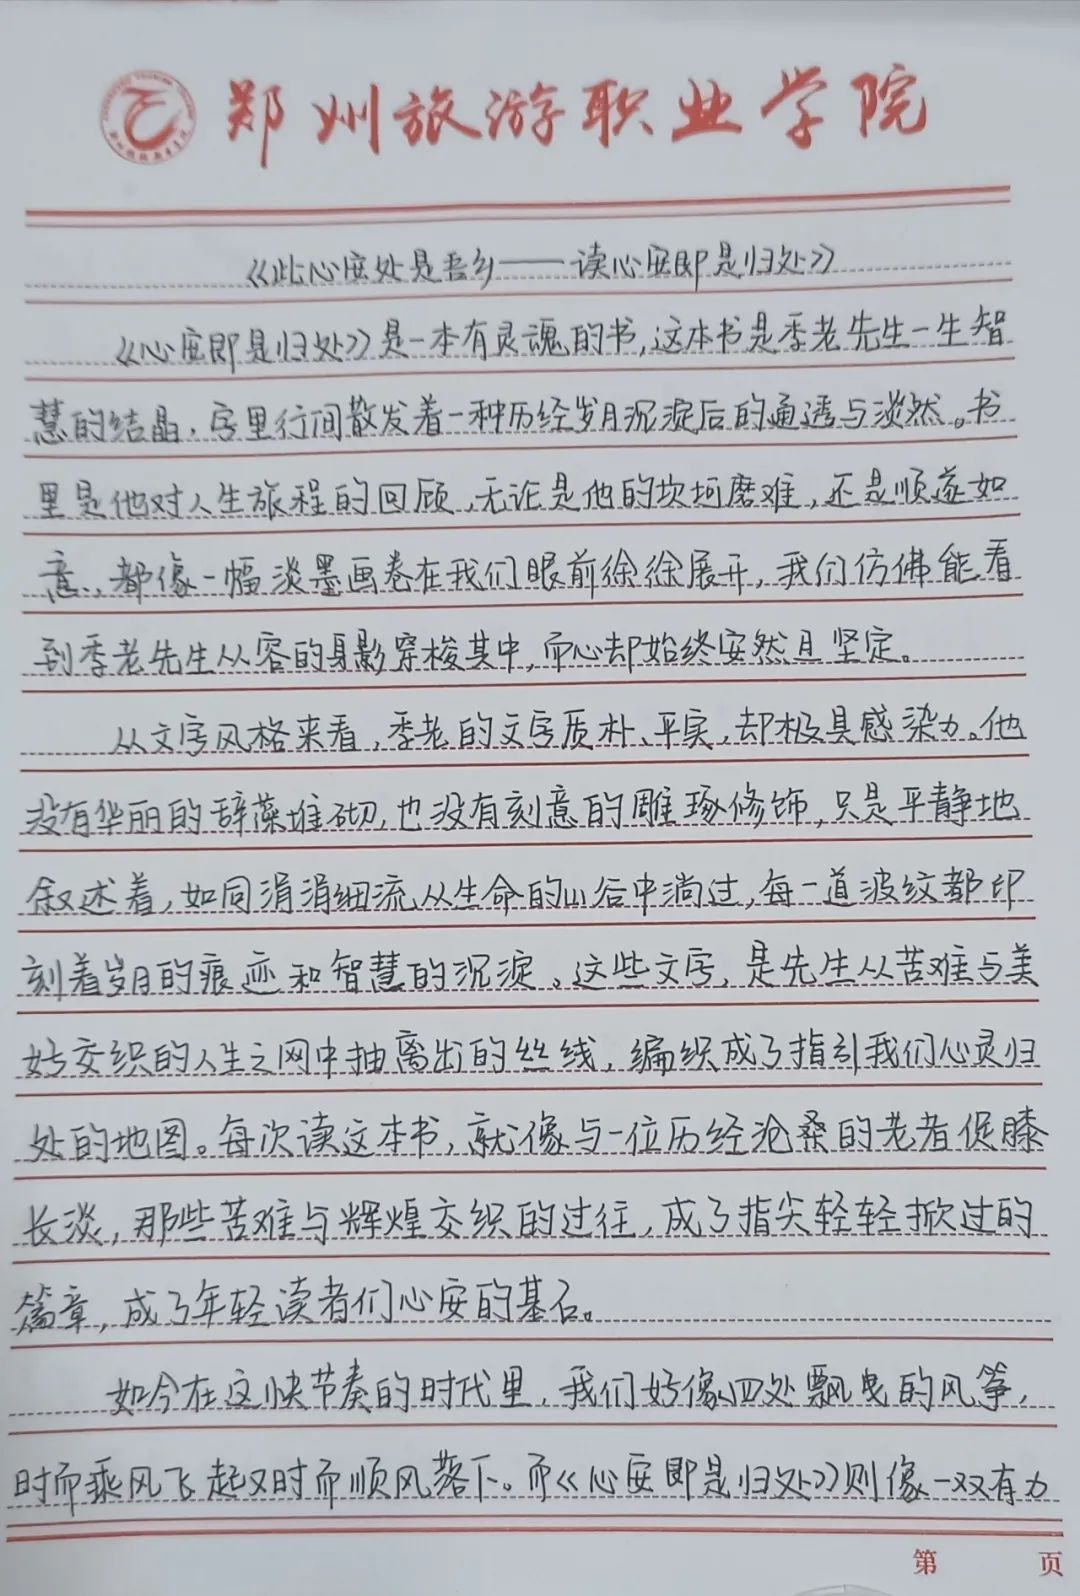 郑州旅游职业学院
《此心安处是吾乡——读心安即是归处》
《心安即是归处》是一本有灵魂的书,这本书是季老先生一生智
慧的结晶,字里行间散发着一种历经岁月沉淀后的通透与淡然。书
里是他对人生旅程的回顾,无论是他的坎坷磨难,还是顺遂如
意,都像一幅淡墨画卷在我们眼前徐徐展开,我们仿佛能看
到季老先生从容的身影穿梭其中,而心却始终安然且坚定。
从文字风格来看,季老的文字质朴、平实,却极具感染力。他
没有华丽的辞藻堆砌,也没有刻意的雕琢修饰,只是平静地
叙述着,如同涓涓细流从生命的山谷中淌过,每一道波纹都印
刻着岁月的痕迹和智慧的沉淀。这些文字,是先生从苦难与美
好交织的人生之网中抽离出的丝线,编织成了指引我们心灵归
处的地图。每次读这本书,就像与一位历经沧桑的老者促膝
长淡,那些苦难与辉煌交织的过往,成了指尖轻轻掀过的
篇章,成了年轻读者们心安的基石。
如今在这快节奏的时代里,我们好像四处飘曳的风筝,
时而乘风飞起又时而顺风落下。而《心安即是归处》则像一双有力
第 页